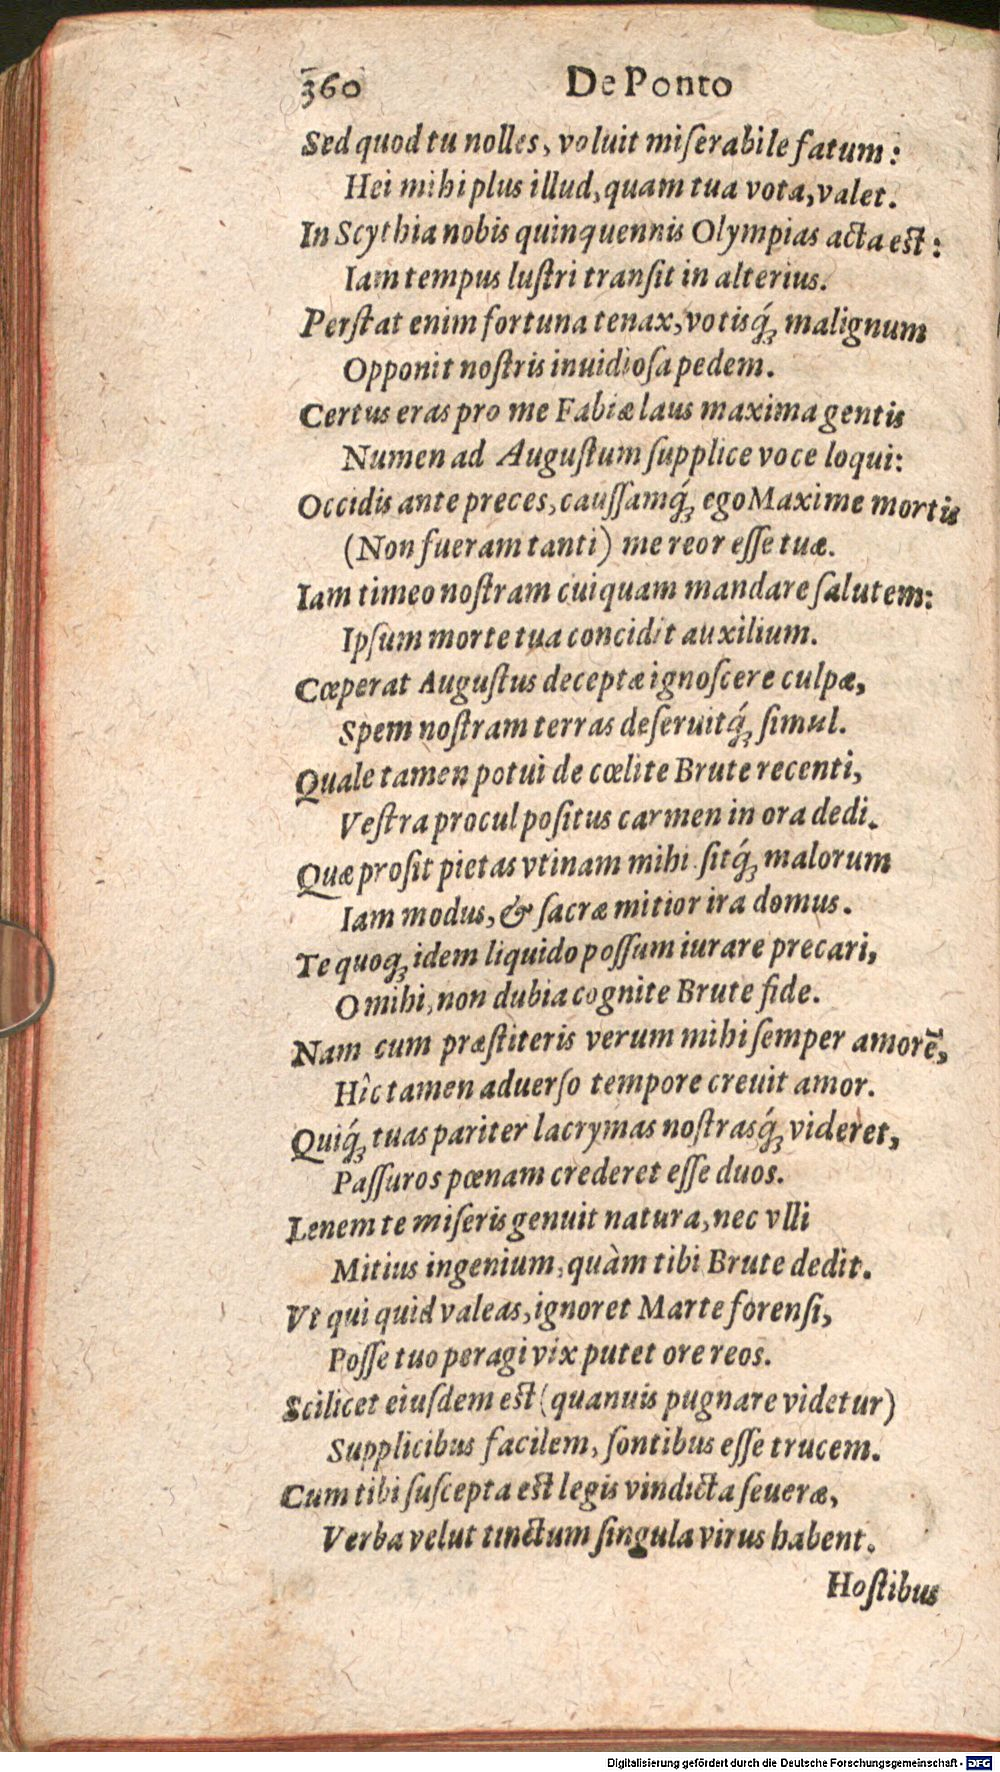 360 De Ponto
Sed quod tu nolles, voluit miſerabile fatum:
Hei mihi plus illud, quam tua vota, valet.
In Scythia nobis quinquennis Olympias acta est:
Iam tempus luſtri tranſit in alterius.
Perſtat enim fortuna tenax, votisq́ꝫ malignum
Opponit noſtris inuidioſa pedem.
Certus eras pro me Fabiæ laus maxima gentis
Numen ad Auguſtum ſupplice voce loqui:
Occidis ante preces, cauſſamq́ꝫ ego Maxime mortis
(Non fueram tanti) me reor eſſe tuæ.
Iam timeo noſtram cuiquam mandare ſalutem:
Ipſum morte tua concidit auxilium.
Cœperat Auguſtus deceptæ ignoſcere culpæ,
Spem noſtram terras deſeruitq́ꝫ ſimul.
Quale tamen potui de cœlite Brute recenti,
Veſtra procul poſitus carmen in ora dedi.
Quæ proſit pietas vtinam mihi ſitq́ꝫ malorum
Iam modus, & ſacræ mitior ira domus.
Te quoqꝫ idem liquido poſſum iurare precari,
O mihi, non dubia cognite Brute fide.
Nam cum præſtiteris verum mihi ſemper amorē,
Hîc tamen aduerſo tempore creuit amor.
Quiq́ꝫ tuas pariter lacrymas noſtrasq́ꝫ videret,
Paſſuros pœnam crederet eſſe duos.
Lenem te miſeris genuit natura, nec vlli
Mitius ingenium, quàm tibi Brute dedit.
Vt qui quid valeas, ignoret Marte forenſi,
Poſſe tuo peragi vix putet ore reos.
Scilicet eiuſdem est (quanuis pugnare videtur)
Supplicibus facilem, ſontibus eſſe trucem.
Cum tibi ſuſcepta est legis vindicta ſeueræ,
Verba velut tinctum ſingula virus habent.
Hoſtibus
Digitalisierung gefördert durch die Deutsche Forschungsgemeinschaft - DFG